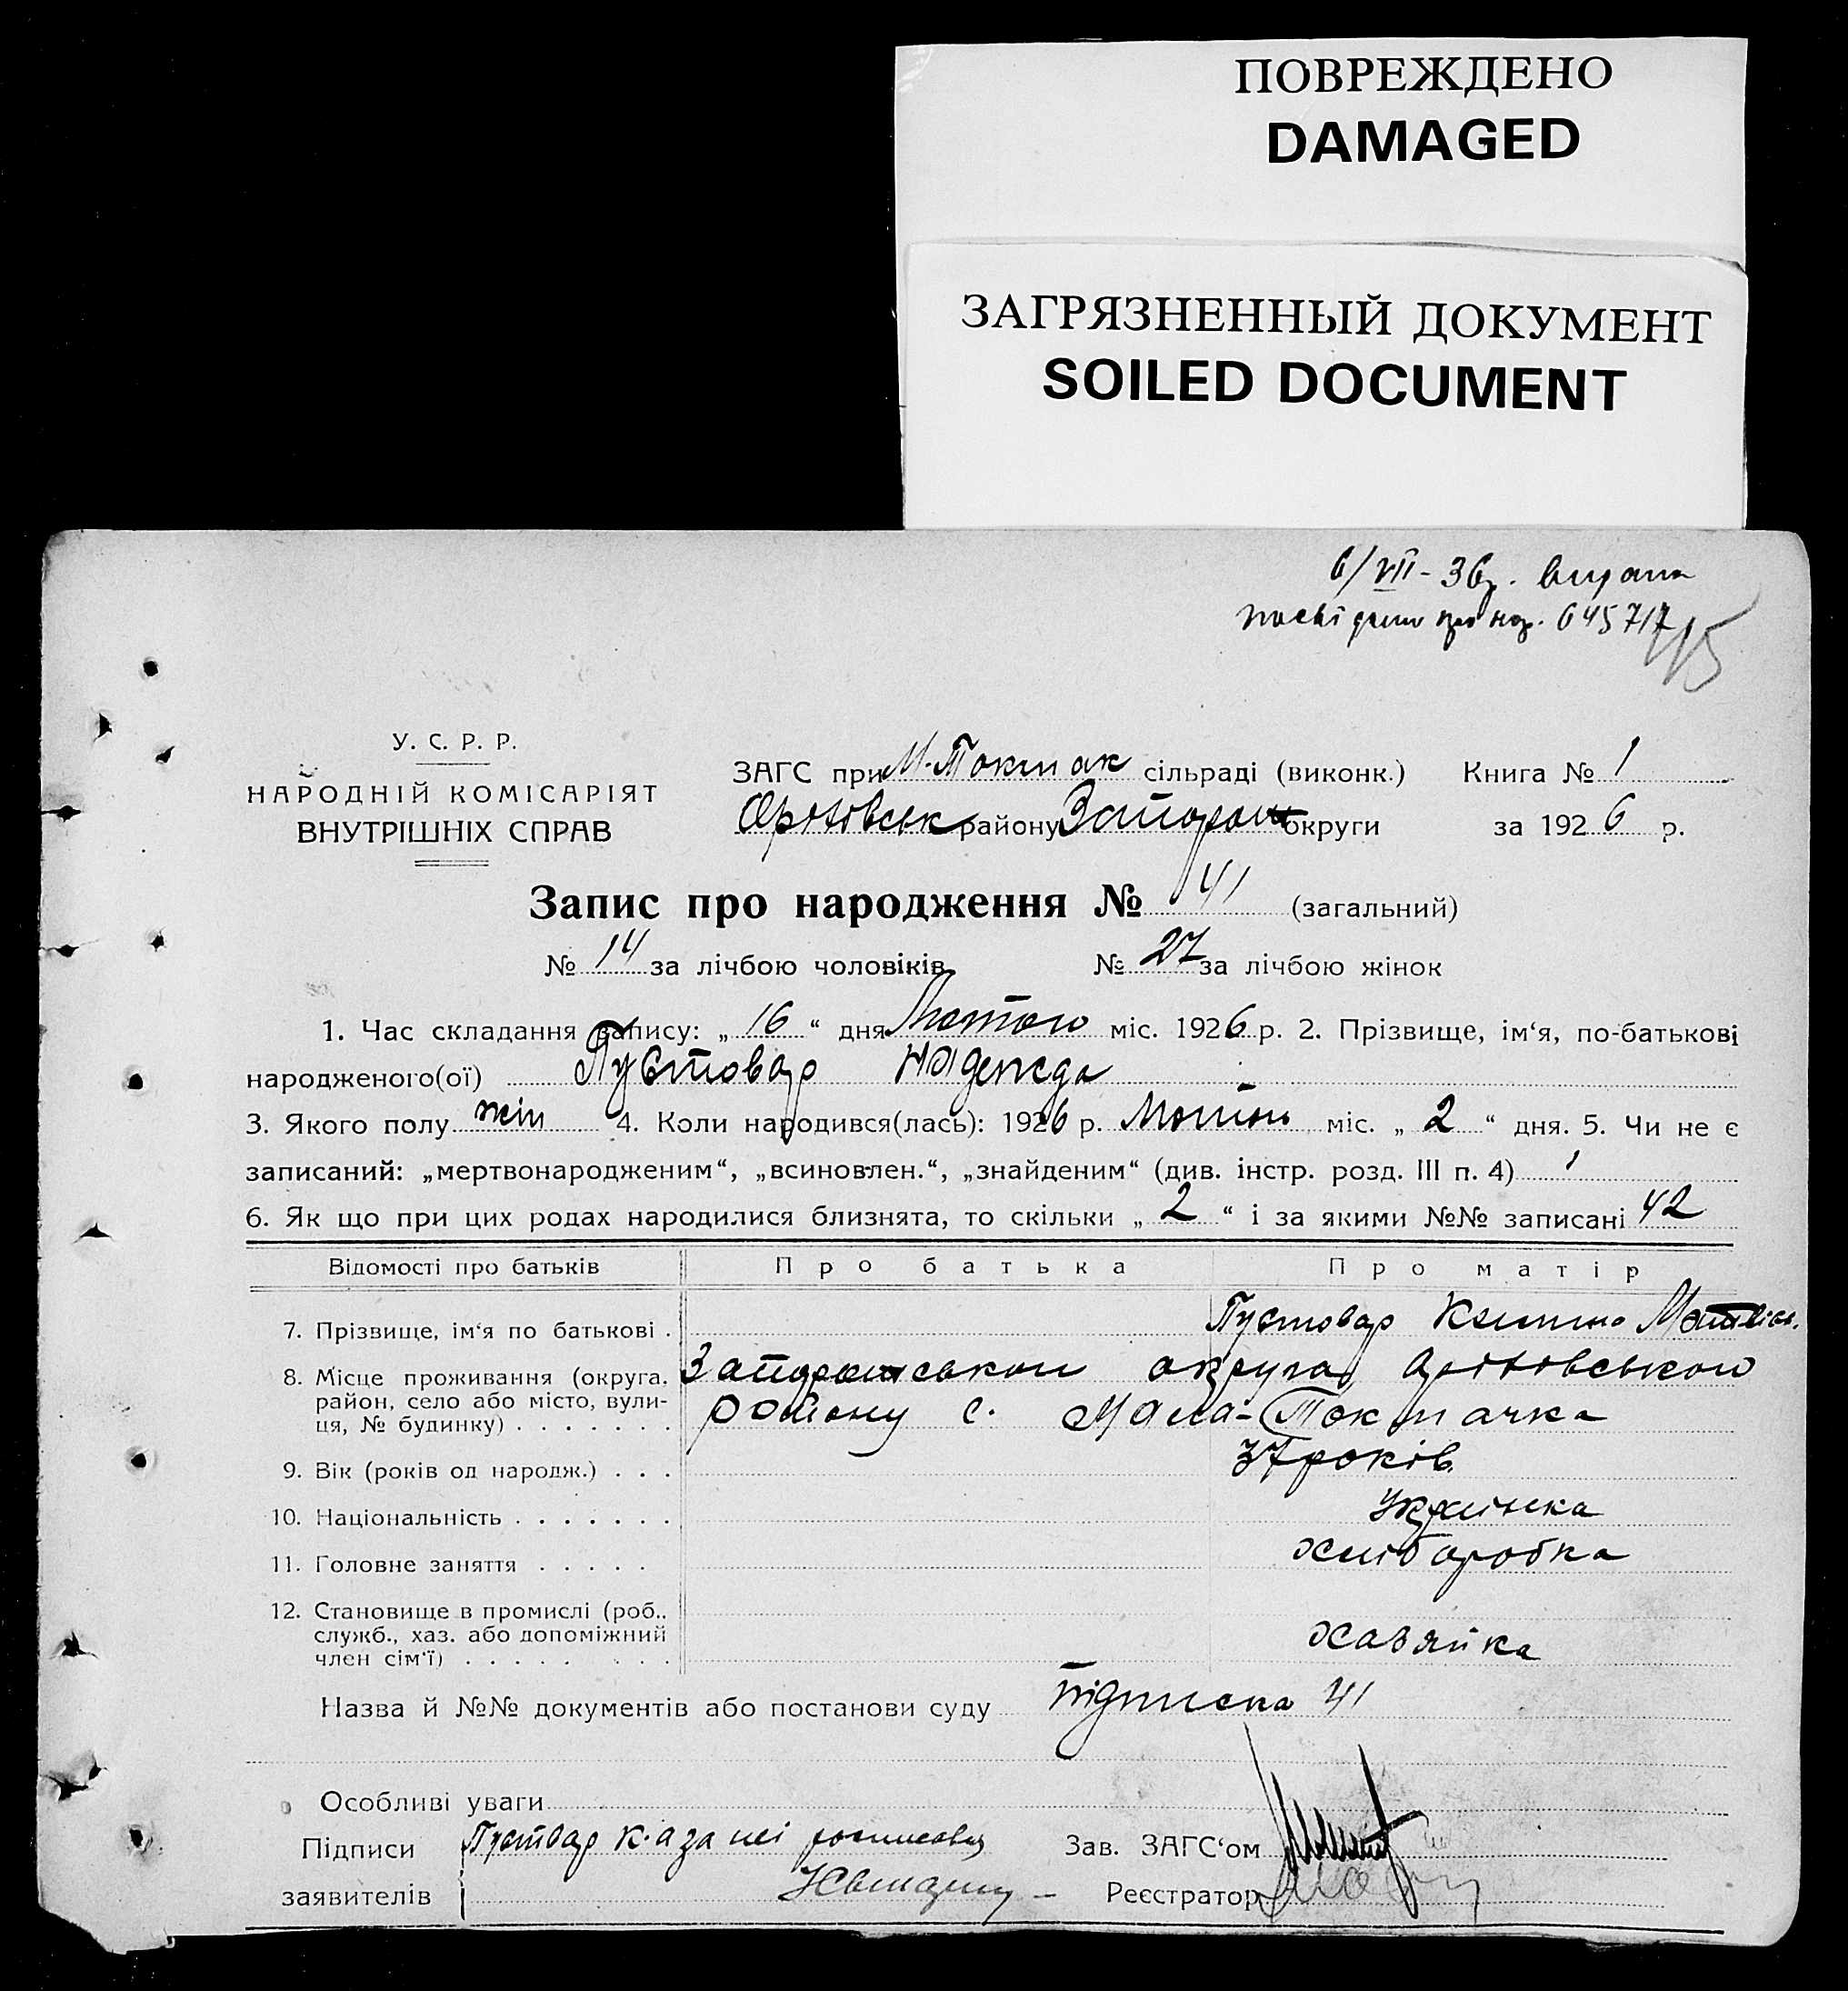 ПОВРЕЖДЕНО
DAMAGED
ЗАГРЯЗНЕННЫЙ ДОКУМЕНТ
SOILED DOCUMENT
6/VII - 36р. видана
посвідчен про нар. 645717
У. С. Р. Р.
НАРОДНІЙ КОМІСАРІЯТ
ВНУТРІШНІХ СПРАВ
ЗАГС при М-Токмак сільраді (виконк.) Книга № 1
Оріховськ району Запорож округи за 1926 р.
Запис про народження № 41 (загальний)
№ 14 за лічбою чоловіків № 27 за лічбою жінок
1. Час складання запису: „ 16 “ дня Лютого міс. 1926 р. 2. Прізвище, ім‘я, по-батькові
народженого(ої) Пустовар Надежда
3. Якого полу жін 4. Коли народився(лась): 1926 р. Лютий міс. „ 2 “ дня. 5. Чи не є
записаний: „мертвонародженим“, „всиновлен.“, „знайденим“ (див. інстр. розд. III п. 4)
6. Як що при цих родах народилися близнята, то скільки „ 2 “ і за якими №№ записані 42
Відомості про батьків Про батька Про матір
7. Прізвище, ім‘я по батькові . Пустовар
8. Місце проживання (округа, район, село або місто, вулиця, № будинку) . . . . . . . Запорожськои округа Оріховського
району с. Мала-Токмачка
9. Вік (років од народж.) . . . 37 років
10. Національність . . . . . . . Українка
11. Головне заняття . . . . . хліборобка
12. Становище в промислі (роб., служб., хаз. або допоміжний член сім‘ї) . . . . . . . . хазяйка
Назва й №№ документів або постанови суду підписка 41
Особливі уваги
Підписи Пуствар К. а за неі росписався Зав. ЗАГС‘ом
заявителів Реєстратор